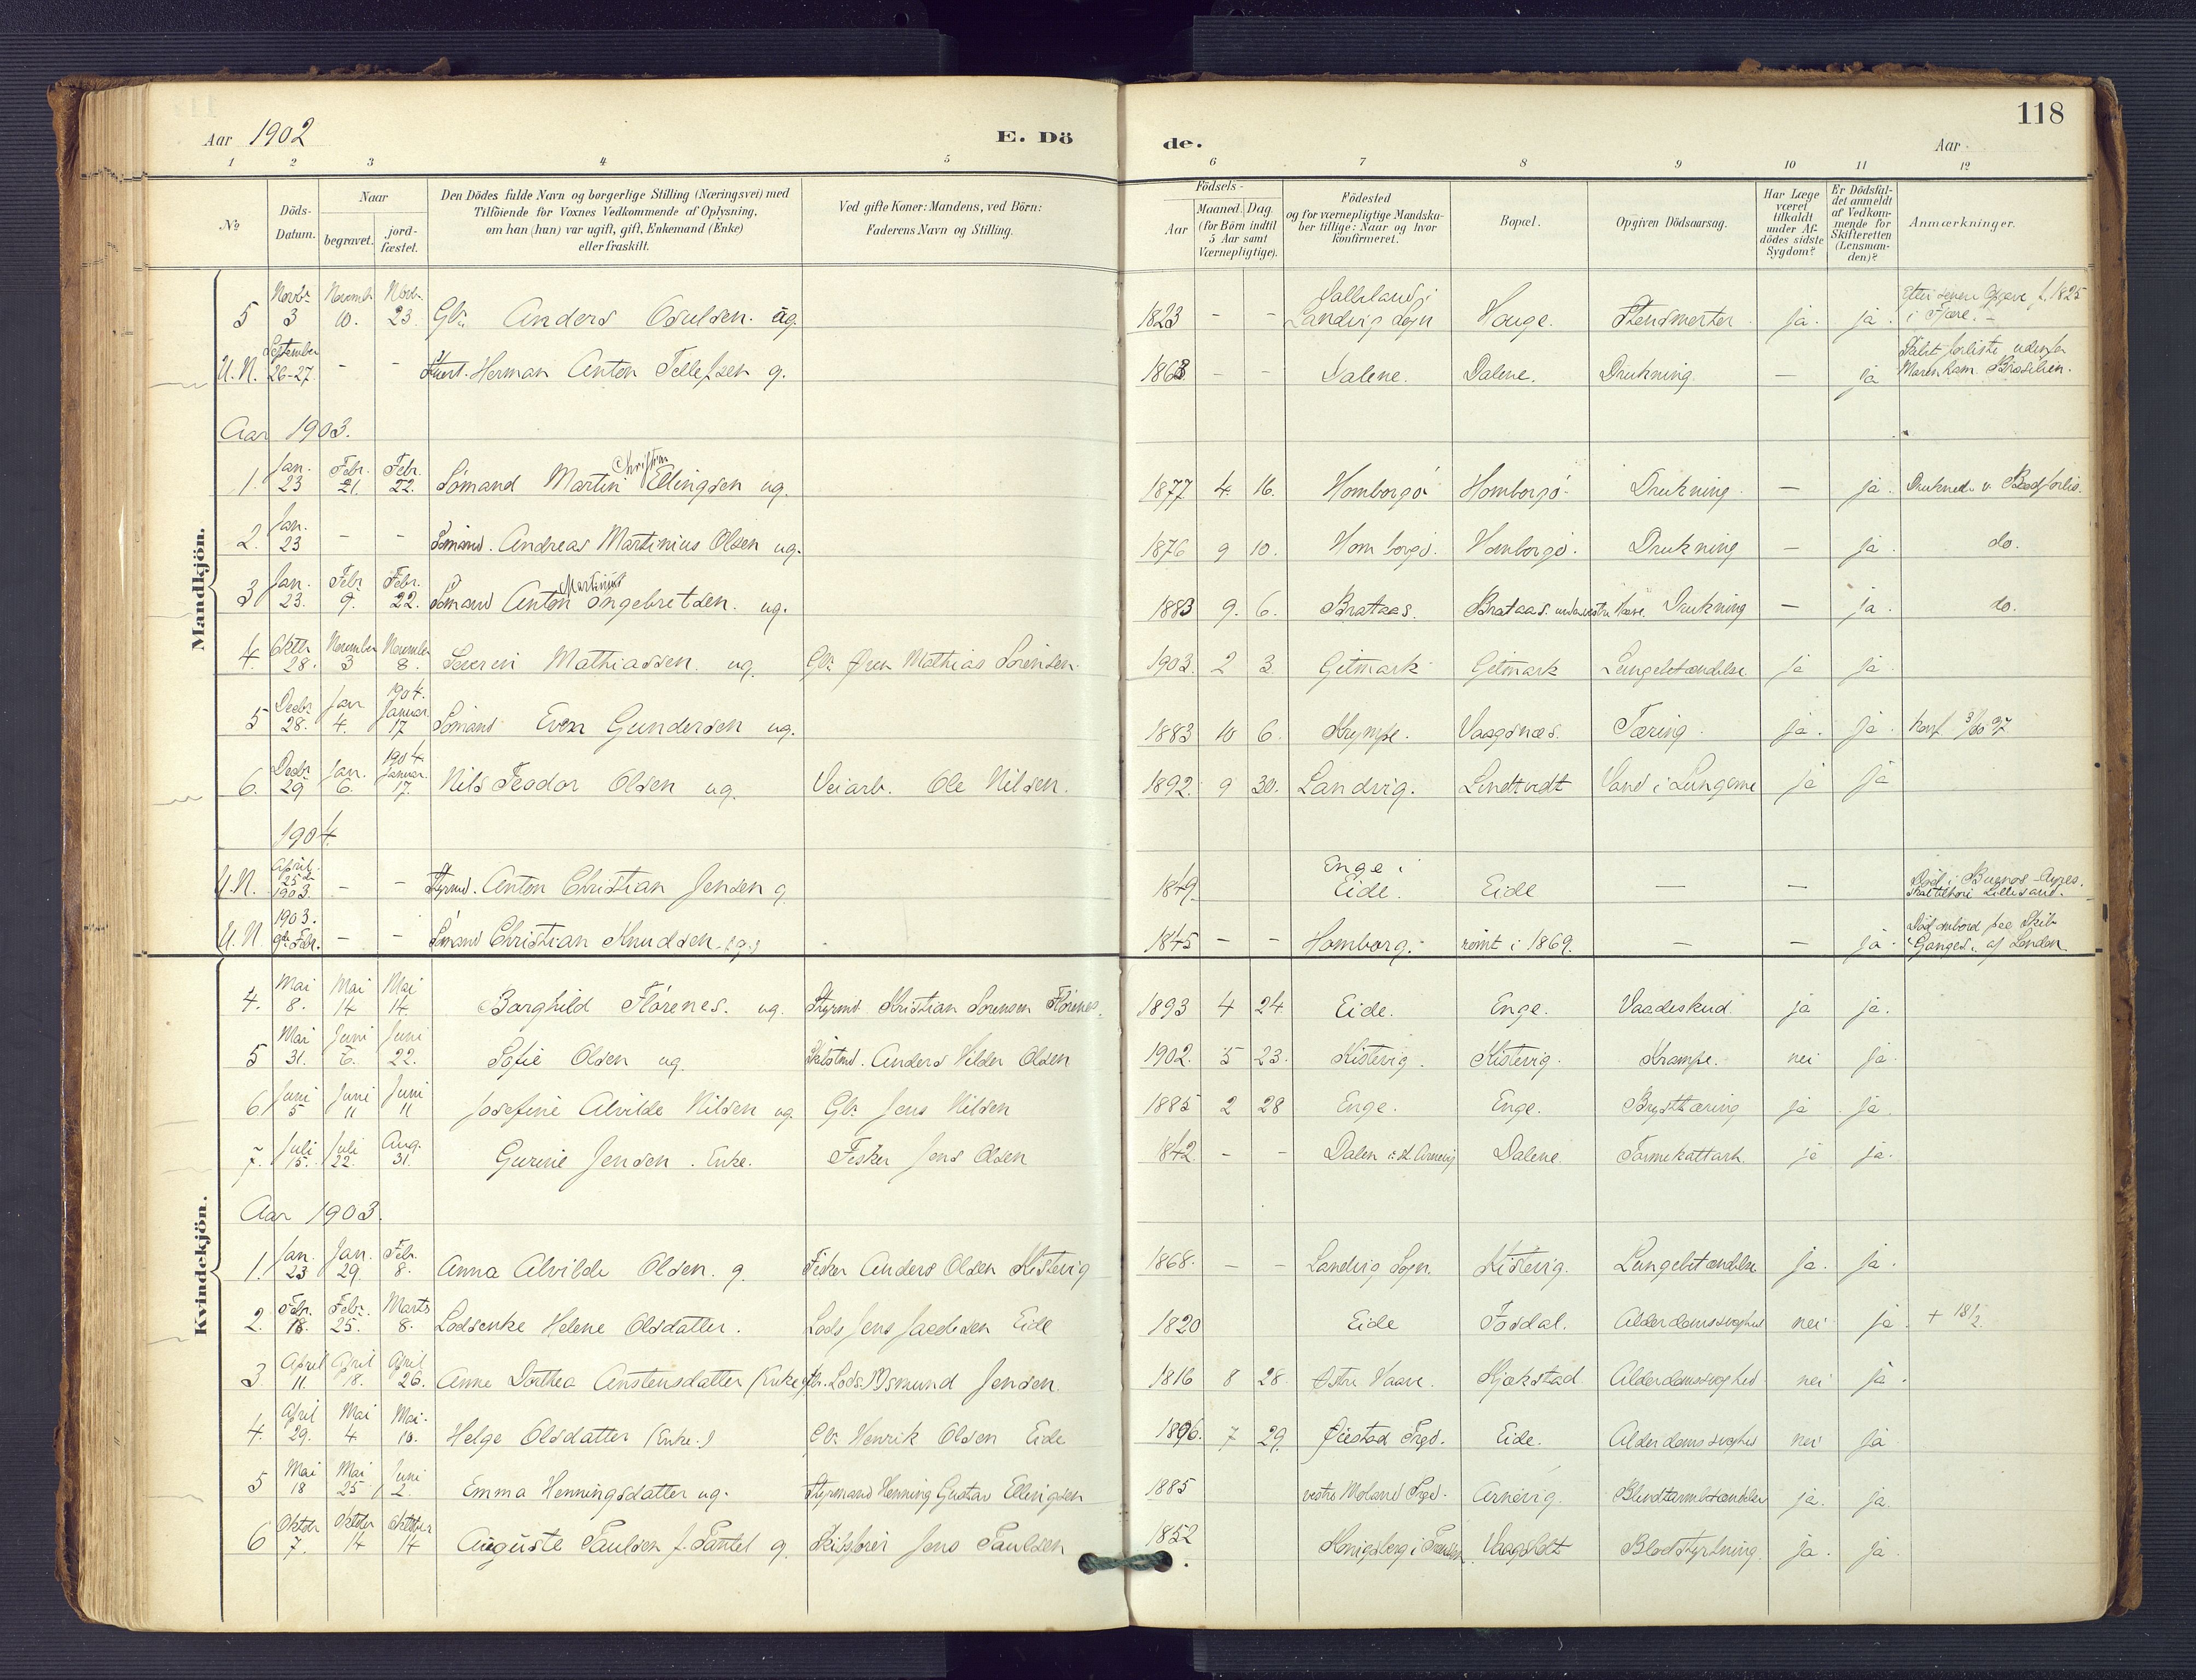 118
Aar 1902
E. Dö
de.
Aar
1 2 3 4 5 6 7 8 9 10 11 12
No
Döds-Datum.
Naar
begravet.
jord-fæstet.
Den Dödes fulde Navn og borgerlige Stilling (Næringsvei) med
Tilföiende for Voxnes Vedkommende af Oplysning,
om han (hun) var ugift, gift, Enkemand (Enke)
eller fraskilt.
Ved gifte Koner: Mandens, ved Börn:
Faderens Navn og Stilling.
Födsels-
Aar
Maaned. Dag.
(for Börn indtil
5 Aar samt
Værnepligtige).
Födested
og for værnepligtige Mandska-
ber tillige: Naar og hvor
konfirmeret.
Bopæl.
Opgiven Dödsaarsag.
Har Læge
været
tilkaldt
under Af-
dödes sidste
Sygdom?
Er Dödsfal-
det anmeldt
af Vedkom-
mende for
Skifteretten
(Lensman-
den)?
Anmærkninger.
Mandkjön.
5 Novbr 3 Novemb. 10. Novbr. 23 Gbr. Anders Osulsen. ug. 1823 - - Landvig Sogn Hauge. ja. ja. 1825 i Fjære.
U.N. September 26-27. - - Herman Anton Tellefsen g. 1868 - - Dalene. Dalene. Drukning. - ja Skibet forliste udenfor Brasilien.
Aar 1903.
1. Jan. 23 Febr. 21. Febr. 22. Sömand Martin Christian Ellingsen ug. 1877 4. 16. Homborgö Homborgö Drukning. - ja. Druknede v. Baadforlis.
2. Jan. 23 - - Sömand. Andreas Martinius Olsen ug. 1876 9 10. Homborgö. Homborgö. Drukning - ja. do.
3 Jan. 23. Febr 9. Febr. 22. Sömand Anton Martinius Ingebretsen. ug. 1883 9. 6. Brataas. Brataas. Drukning - ja. do.
4. Oktbr 28. November 3 November 8. Severin Mathiassen. ug. Gbr. Mathias Sörensen. 1903. 2 3. Geitmark Geitmark Lungebetændelse ja ja.
5 Decbr 28. Jan 4. 1904. Januar. 17 Sömand Even Gundersen ug. 1883 10 6. Krympe. Vaagsnæs. Tæring. ja. ja. Konf. 3/10 97
6. Decbr 29 Jan. 6. 1904. Januar. 17. Nils Teodor Olsen ug. Veiarb. Ole Nilsen. 1892. 9 30. Landvig. Lindtvedt Vand i Lungerne ja ja
1904.
U.N. April 25de 1903. - - Styrmd. Anton Christian Jensen g 1849. Enge i Eide. Eide - - Död i Buenos-Ayres. Lillesand.
U.N. 1903. 9de Febr. - - Sömand Christian Knudsen. (g.) 1845 - - Homborg. römt i 1869. - - ja. Död ombord paa Skib "Ganges" af London.
Kvindekjön.
4. Mai 8. Mai 14 Mai 14. Borghild Flörenes. ug. Styrmd. Kristian Sörensen Flörenes. 1893 4 24 Eide. Enge. Vaadeskud. ja ja.
5 Mai 31. Juni 6. Juni 22. Sofie Olsen ug. Anders Hilder Olsen 1902. 5 23. Kistevig. Kistevig. Krampe. nei ja
6. Juni 5 Juni 11 Juni 11 Josefine Alvilde Nilsen ug. Gbr. Jens Nilsen 1885 2 28 Enge. Enge. Brysttæring ja ja.
7. Juli 15. Juli 22. Aug. 31. Gurine Jensen. Enke. Fisker Jens Olsen 1842. - - Dalen Dalene. Tarmekattarh. ja ja.
Aar 1903.
1. Jan. 23 Jan. 29. Febr. 8. Anna Alvilde Olsen. g. Fisker Anders Olsen Kistevig 1868. - - Landvig Sogn. Kistevig. Lungebetændelse ja. ja.
2. Febr. 18. Febr. 25. Marts 8. Lodsenke Helene Olsdatter. Lods Jens Eide 1820 Eide Fosdal. Alderdomssvaghed nei ja. + 18/2.
3. April 11. April 18. April 26. Anne Dorthea Anstensdatter (Enke) Lods Osmund Jensen. 1816 8 28 Østre Vaave. Kjøkstad Alderdomssvaghed nei ja.
4. April 29. Mai 4. Mai 10. Helge Olsdatter (Enke.) Gbr. Henrik Olsen Eide 7 29. Øiestad Prgd. Eide. Alderdomssvaghed nei ja
5 Mai 18 Mai 25 Juni 2. Emma Henningsdatter ug. Styrmand Henning Gustav Ellingsen 1885 vestre Moland Prgd. Arnevig. Blindtarmbetændelse ja. ja.
6 Oktbr 7. Oktbr 14 Oktober 14 Auguste Paulsen g. Skibsförer Jens Paulsen 1852 Königsberg i Vaagsholt Blodstyrtning. ja. ja.